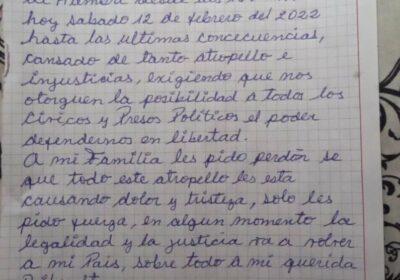 hoy sabado 12 de febrero del 2022
hasta las ultimas concecuencias,
cansado de tanto atropello e
injusticias, exigiendo que nos
otorguen la posibilidad a todos los
Civicos y Presos Politicos el poder
defendernos en libertad.
A mi Familia les pido perdón se
que todo este atropello les esta
causando dolor y tristeza, solo les
pido fuerza, en algun momento la
legalidad y la justicia va a volver
a mi Pais, sobre todo a mi querida